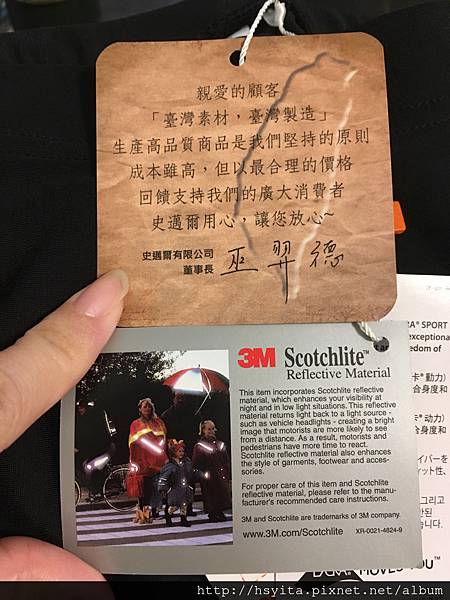 親愛的顧客
「臺灣素材，臺灣製造」
生產高品質商品是我們堅持的原則
成本雖高，但以最合理的價格
回饋支持我們的廣大消費者
史邁爾用心，讓您放心~
史邁爾有限公司
董事長 巫羿德
3M Scotchlite™
Reflective Material
This item incorporates Scotchlite reflective
material, which enhances your visibility at
night and in low light situations. This reflective
material returns light back to a light source -
such as vehicle headlights - creating a bright
image that motorists are more likely to see
from a distance. As a result, motorists and
pedestrians have more time to react.
Scotchlite reflective material also enhances
the style of garments, footwear and acces-
sories.
For proper care of this item and Scotchlite
reflective material, please refer to the manu-
facturer's recommended care instructions.
3M and Scotchlite are trademarks of 3M company.
www.3M.com/Scotchlite XR-0021-4824-9
SPORT
exceptional
edom of
卡® 動力）
合身度和
卡® 动力）
合身度和
イバーを
ィット性、
그리고
습니다.
MOVES YOU™
http://hsyita.pixnet.net/album